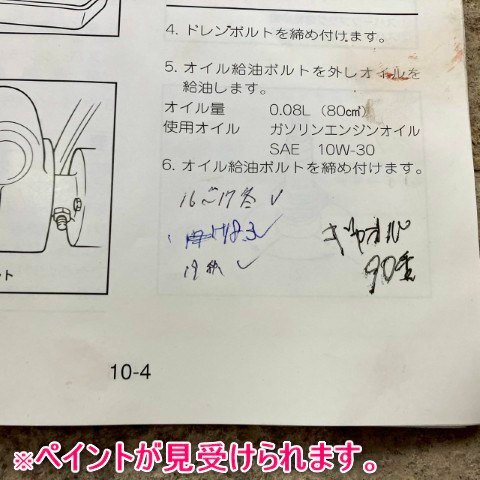 4. ドレンボルトを締め付けます。
5. オイル給油ボルトを外しオイルを
給油します。
オイル量 0.08L (80㎤)
使用オイル ガソリンエンジンオイル
SAE 10W-30
6. オイル給油ボルトを締め付けます。
16~17冬 ✓
18.3 ✓
19秋 ✓
ギヤオイル
90番
ット
10-4
※ペイントが見受けられます。